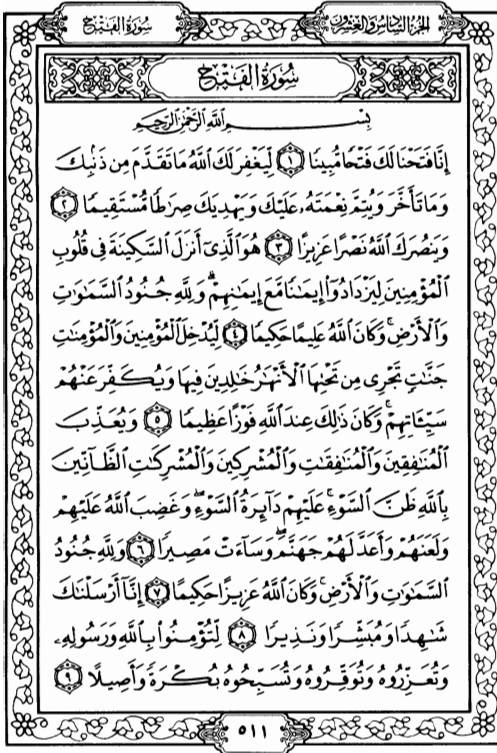 سُورَةُ الْفَتْحِ
الجُزْءُ السَّادِسُ وَالعِشْرُونَ
سُورَةُ الْفَتْحِ
بِسْمِ اللَّهِ الرَّحْمَٰنِ الرَّحِيمِ
إِنَّا فَتَحْنَا لَكَ فَتْحًا مُّبِينًا ١ لِّيَغْفِرَ لَكَ اللَّهُ مَا تَقَدَّمَ مِن ذَنۢبِكَ
وَمَا تَأَخَّرَ وَيُتِمَّ نِعْمَتَهُۥ عَلَيْكَ وَيَهْدِيَكَ صِرَٰطًا مُّسْتَقِيمًا ٢
وَيَنصُرَكَ اللَّهُ نَصْرًا عَزِيزًا ٣ هُوَ الَّذِىٓ أَنزَلَ السَّكِينَةَ فِى قُلُوبِ
الْمُؤْمِنِينَ لِيَزْدَادُوٓا۟ إِيمَٰنًا مَّعَ إِيمَٰنِهِمْ ۗ وَلِلَّهِ جُنُودُ السَّمَٰوَٰتِ
وَالْأَرْضِ ۚ وَكَانَ اللَّهُ عَلِيمًا حَكِيمًا ٤ لِّيُدْخِلَ الْمُؤْمِنِينَ وَالْمُؤْمِنَٰتِ
جَنَّٰتٍ تَجْرِى مِن تَحْتِهَا الْأَنْهَٰرُ خَٰلِدِينَ فِيهَا وَيُكَفِّرَ عَنْهُمْ
سَيِّـَٔاتِهِمْ ۚ وَكَانَ ذَٰلِكَ عِندَ اللَّهِ فَوْزًا عَظِيمًا ٥ وَيُعَذِّبَ
الْمُنَٰفِقِينَ وَالْمُنَٰفِقَٰتِ وَالْمُشْرِكِينَ وَالْمُشْرِكَٰتِ الظَّآنِّينَ
بِاللَّهِ ظَنَّ السَّوْءِ ۚ عَلَيْهِمْ دَآئِرَةُ السَّوْءِ ۖ وَغَضِبَ اللَّهُ عَلَيْهِمْ
وَلَعَنَهُمْ وَأَعَدَّ لَهُمْ جَهَنَّمَ ۖ وَسَآءَتْ مَصِيرًا ٦ وَلِلَّهِ جُنُودُ
السَّمَٰوَٰتِ وَالْأَرْضِ ۚ وَكَانَ اللَّهُ عَزِيزًا حَكِيمًا ٧ إِنَّآ أَرْسَلْنَٰكَ
شَٰهِدًا وَمُبَشِّرًا وَنَذِيرًا ٨ لِّتُؤْمِنُوا۟ بِاللَّهِ وَرَسُولِهِۦ
وَتُعَزِّرُوهُ وَتُوَقِّرُوهُ وَتُسَبِّحُوهُ بُكْرَةً وَأَصِيلًا ٩
٥١١